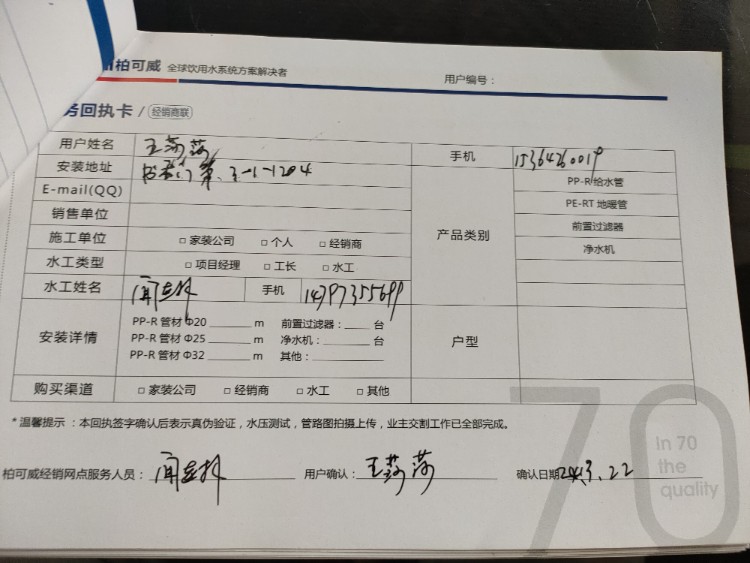 柏可威 全球饮用水系统方案解决者
用户编号：
务回执卡 / 经销商联
用户姓名 王莎莎 手机 15364260019
安装地址 3-1-1204
PP-R 给水管
E-mail(QQ)
PE-RT 地暖管
销售单位 产品类别 前置过滤器
施工单位 □ 家装公司 □ 个人 □ 经销商
净水机
水工类型 □ 项目经理 □ 工长 □ 水工
水工姓名 手机 14797355699
安装详情 户型
PP-R 管材 Φ20 m 前置过滤器： 台
PP-R 管材 Φ25 m 净水机： 台
PP-R 管材 Φ32 m 其他：
购买渠道 □ 家装公司 □ 经销商 □ 水工 □ 其他
* 温馨提示：本回执签字确认后表示真伪验证，水压测试，管路图拍摄上传，业主交割工作已全部完成。
柏可威经销网点服务人员： 用户确认： 王莎莎 确认日期 3.22
70
In 70
the
quality